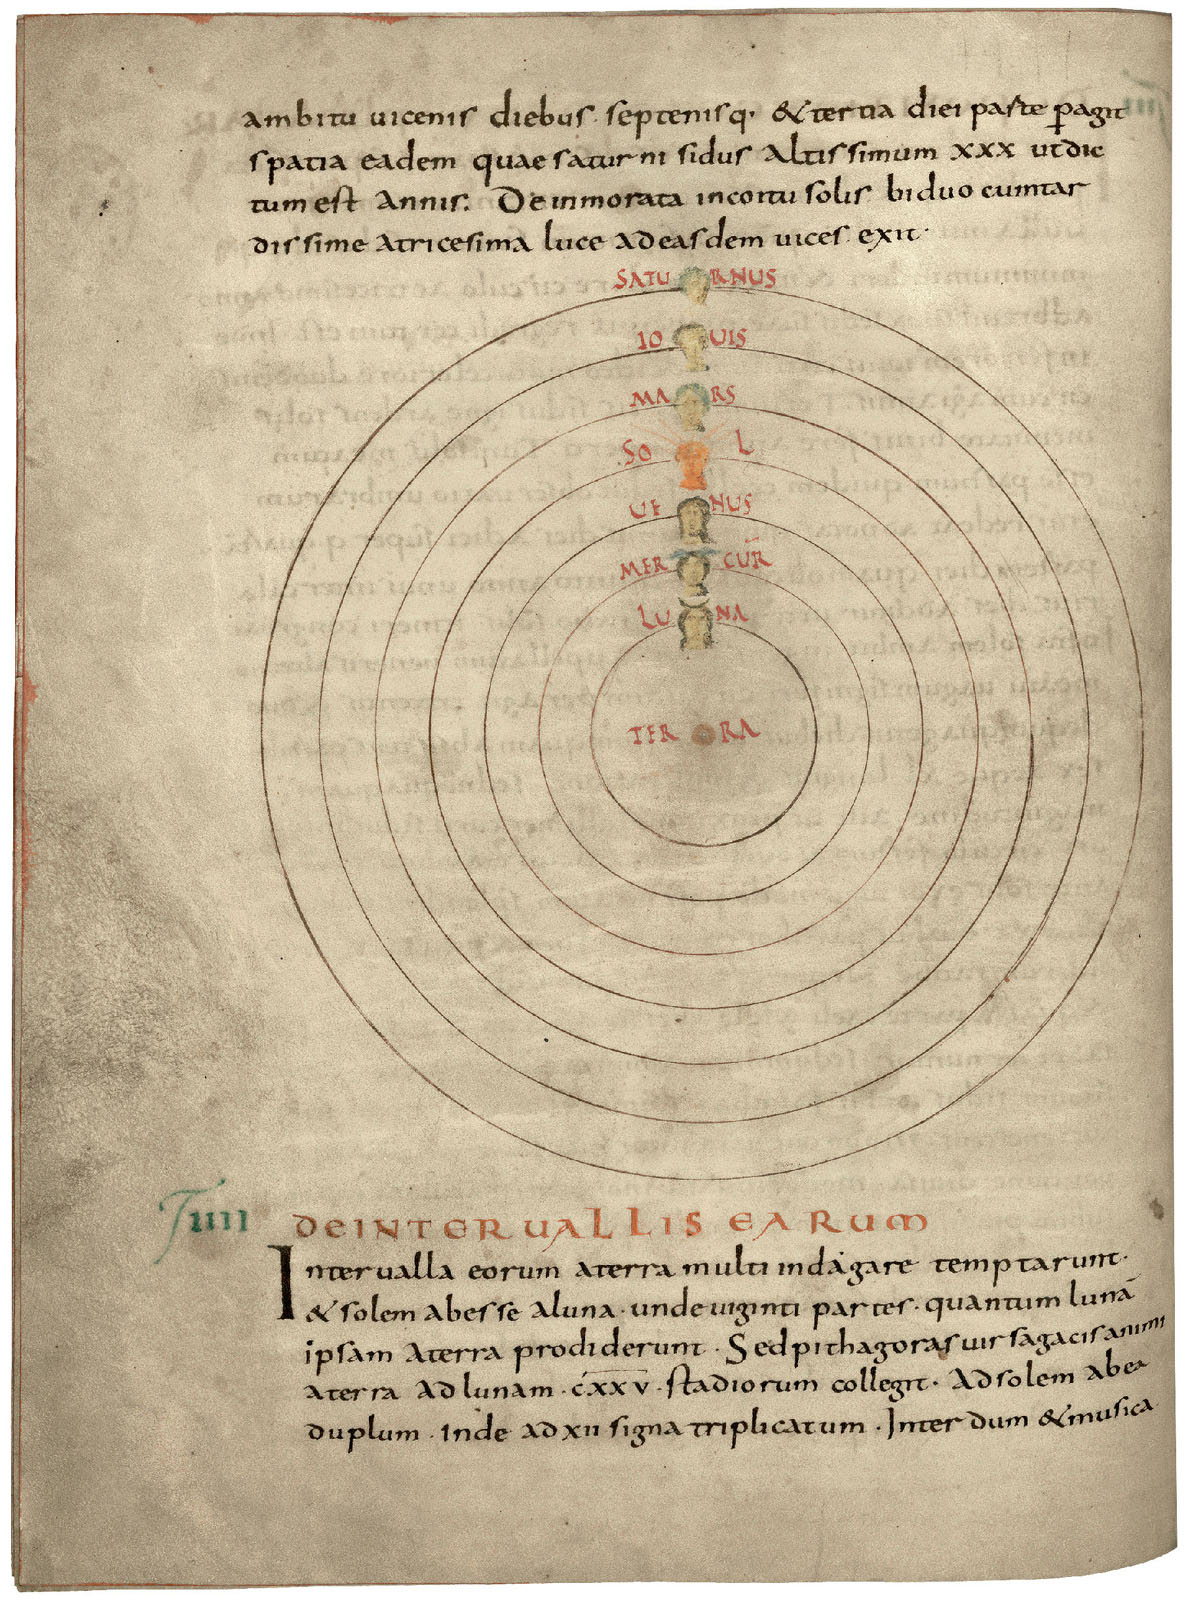 ambitu uicenis diebus septenisq· & tertia diei parte ꝑagit
spatia eadem quae saturni sidus altissimum xxx ut dic
tum est annis. De inmorata in coitu solis biduo cum tar
dissime a tricesima luce ad easdem uices exit·
SATURNUS
IOUIS
MARS
SOL
UENUS
MERCUR̄
LUNA
TERRA
IIII DE INTERUALLIS EARUM
Interualla eorum a terra multi indagare temptarunt·
& solem abesse a luna· undeuiginti partes· quantum lunā
ipsam a terra prodiderunt· Sed pithagoras uir sagacis animi
a terra ad lunam· cxxv· stadiorum collegit· Ad solem ab ea
duplum· Inde ad xii signa triplicatum· Interdum & musica